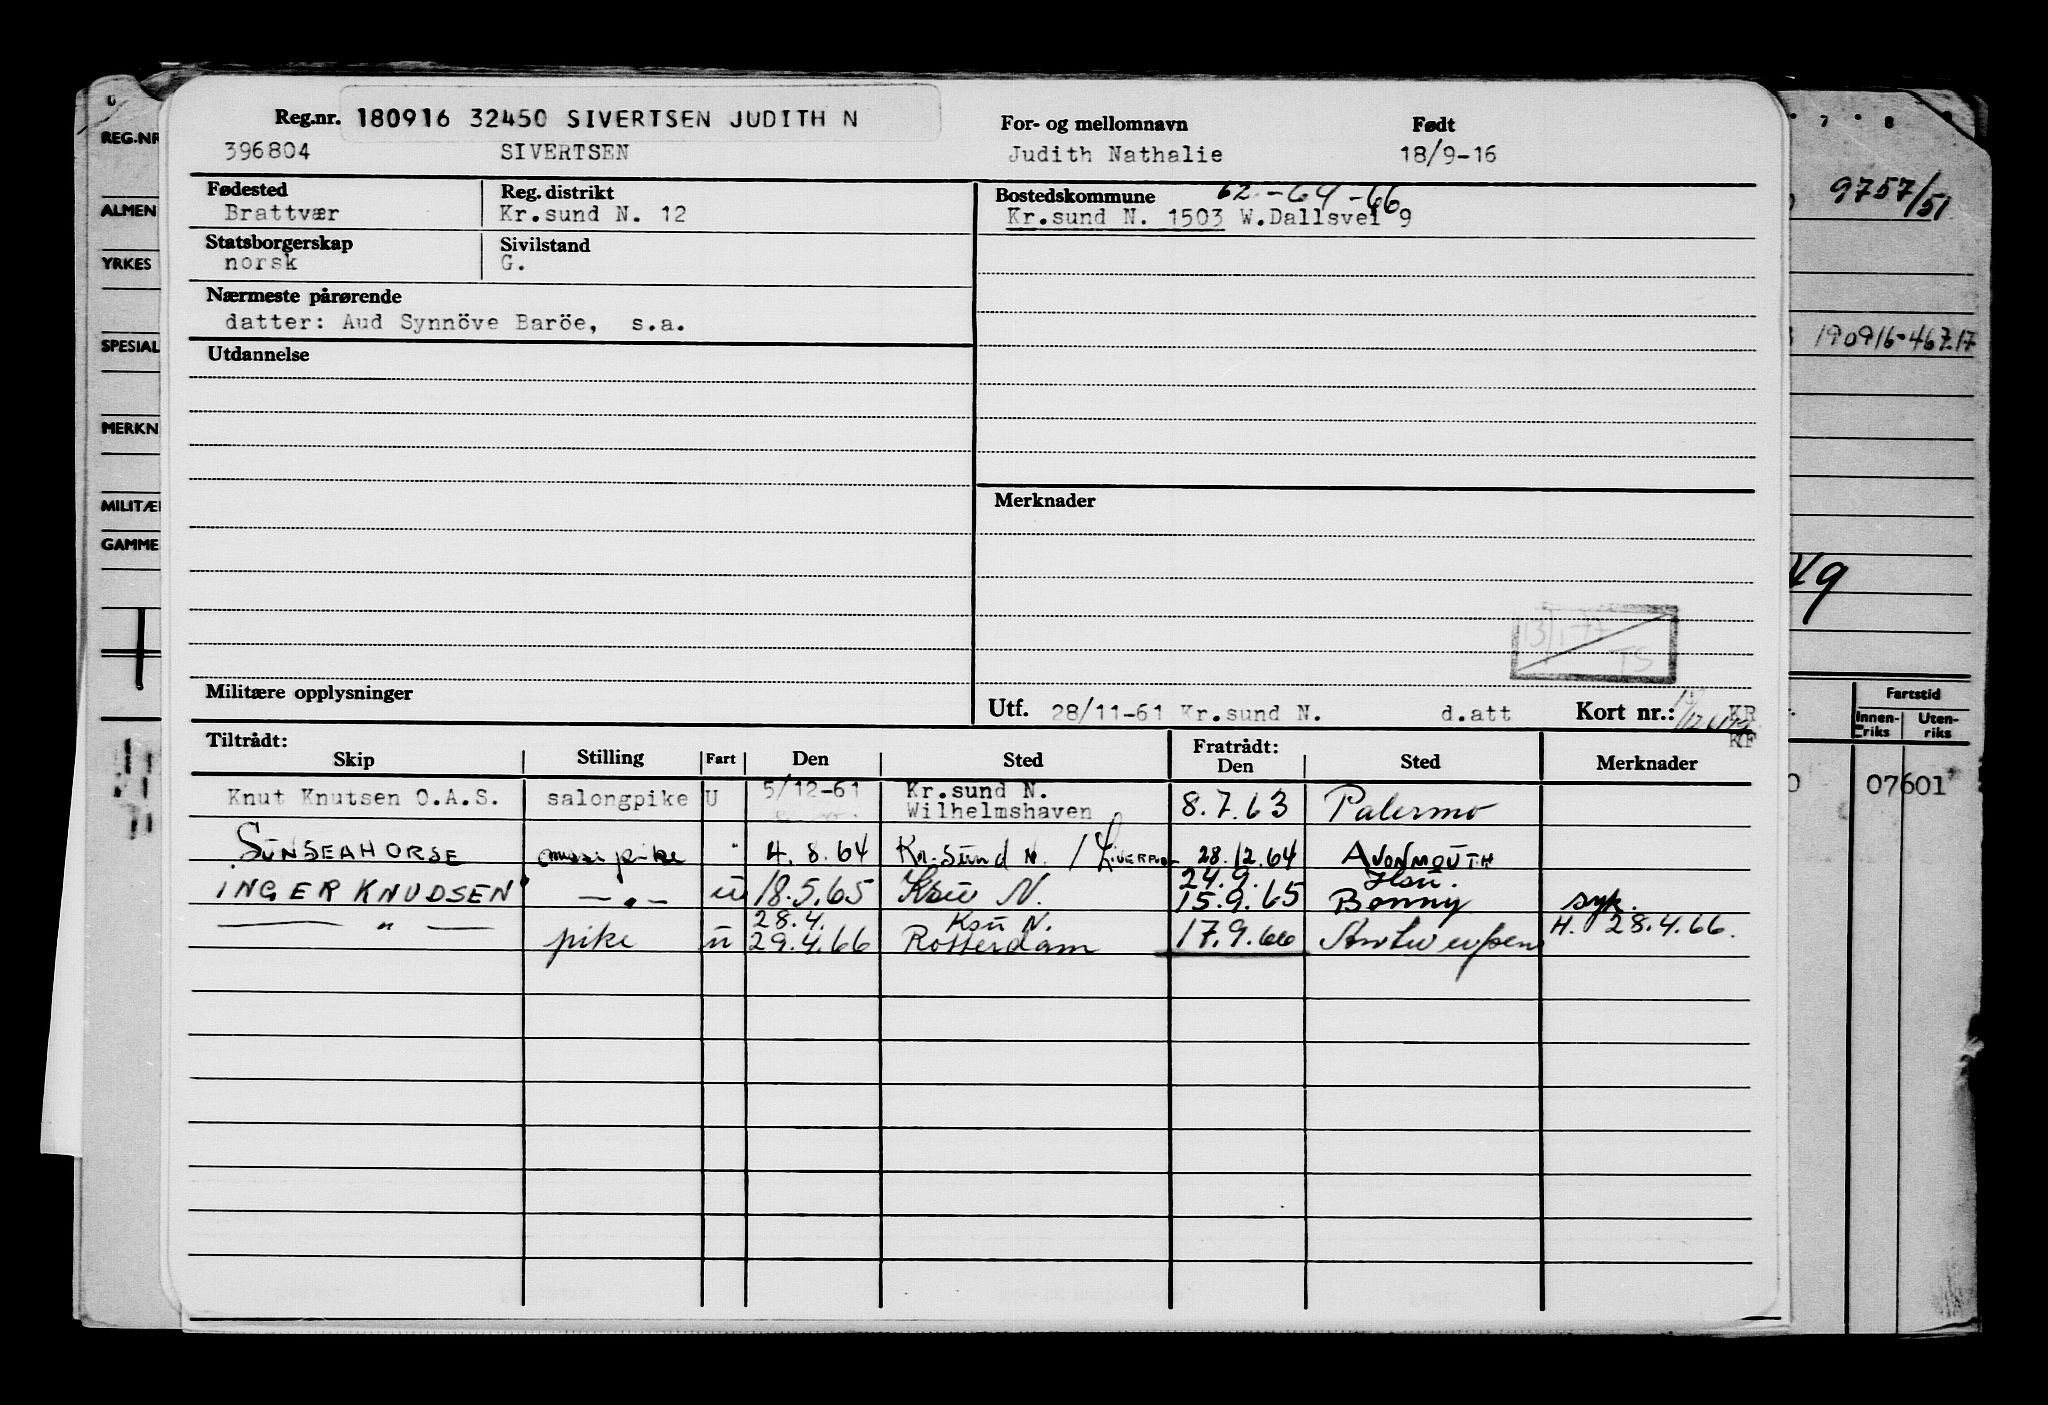 Reg.nr. 180916 32450 SIVERTSEN JUDITH N
For- og mellomnavn Født
396804 SIVERTSEN Judith Nathalie 18/9-16
Fødested Reg. distrikt Bostedskommune 62-64-66
Brattvær Kr.sund N. 12 Kr.sund N. 1503 W.Dallsvei 9
Statsborgerskap Sivilstand
norsk G.
Nærmeste pårørende
datter: Aud Synnöve Baröe, s.a.
Utdannelse
Merknader
13/1-77
TS
Militære opplysninger
Utf. 28/11-61 Kr.sund N. d.att Kort nr.: KR
Tiltrådt: Fratrådt:
Skip Stilling Fart Den Sted Den Sted Merknader
Knut Knutsen O.A.S. salongpike U 5/12-61 Kr.sund N. Wilhelmshaven 8.7.63 Palermo
SUNSEAHORSE pike " 4.8.64 Kr.sund N. / 28.12.64 AVONMOUTH
INGER KNUDSEN — " — u 18.5.65 Ksu N. 24.9. 15.9.65 Ksu. Bonny syk.
— " — pike u 28.4. 29.4.66 Ksu N. Rotterdam 17.9.66 Antwerpen H. 28.4.66.
REG.NR
ALMEN
YRKES
SPESIAL
MERKN
MILITÆ
GAMME
7 8
9757/51
190916-46717
49
Fartstid
Innen-riks Uten-riks
07601